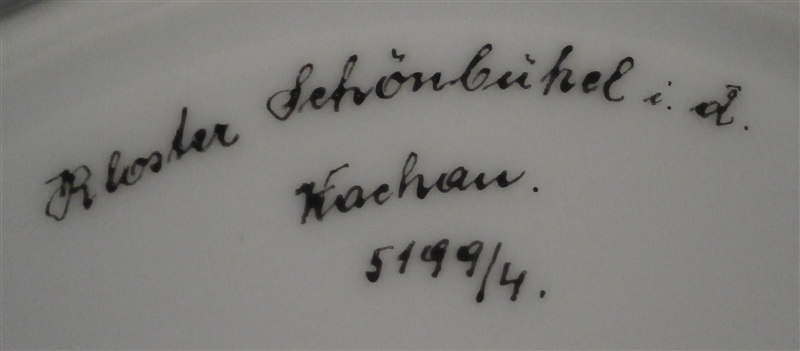 Kloster Schönbühel i. d.
Wachau.
5199/4.